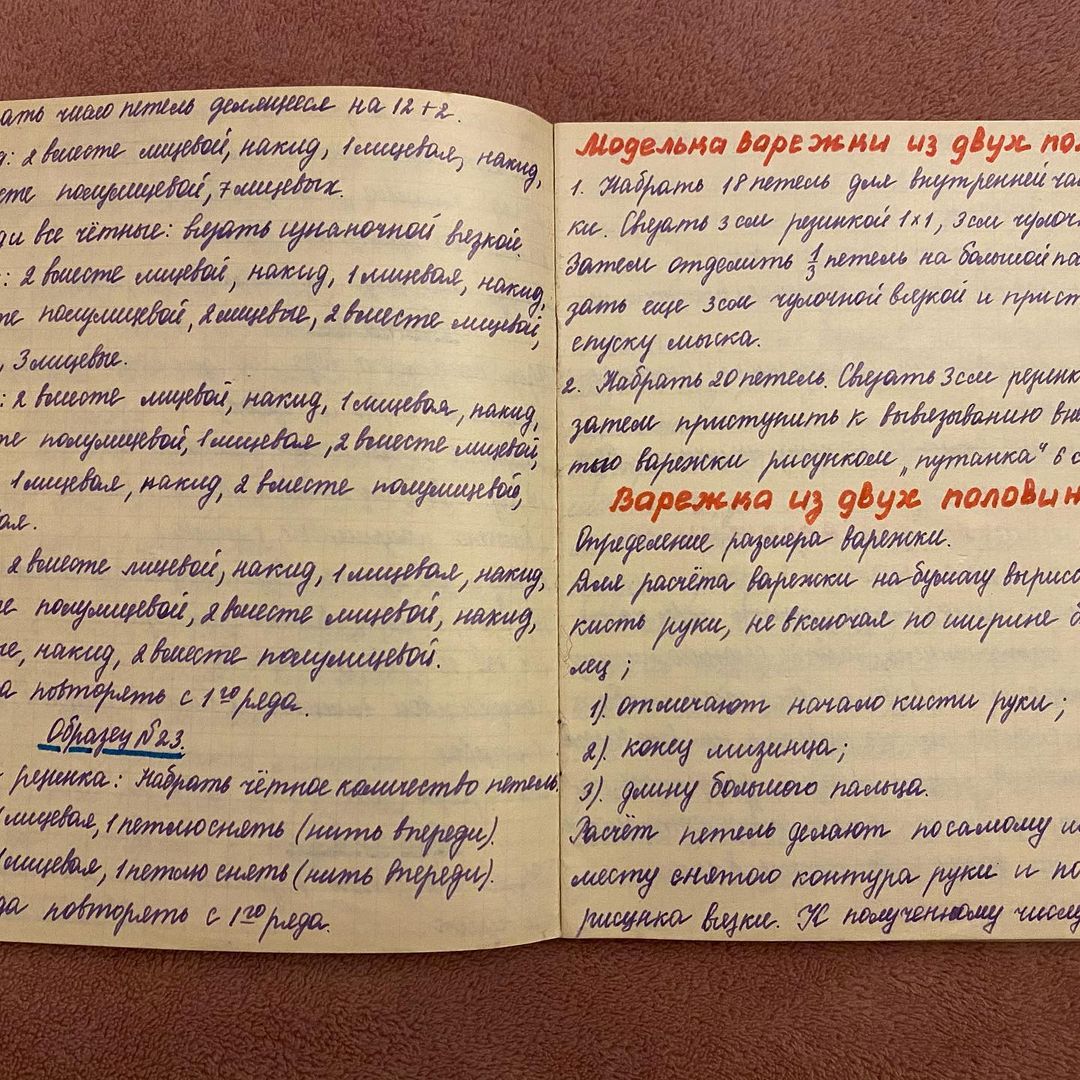 ать число петель делящееся на 12+2.
д: 2 вместе лицевой, накид, 1 лицевая, накид,
сте полулицевой, 7 лицевых.
ди все чётные: вязать изнаночной вязкой.
: 2 вместе лицевой, накид, 1 лицевая, накид,
те полулицевой, 2 лицевые, 2 вместе лицевой,
, 3 лицевые.
: 2 вместе лицевой, накид, 1 лицевая, накид,
те полулицевой, 1 лицевая, 2 вместе лицевой,
1 лицевая, накид, 2 вместе полулицевой,
вая.
2 вместе лицевой, накид, 1 лицевая, накид,
е полулицевой, 2 вместе лицевой, накид,
ые, накид, 2 вместе полулицевой.
а повторять с 1го ряда.
Образец №23.
резинка: Набрать чётное количество петель.
1 лицевая, 1 петлю снять (нить впереди).
1 лицевая, 1 петлю снять (нить впереди).
да повторять с 1го ряда.
Моделька варежки из двух пол
1. Набрать 18 петель для внутренней час
ки. Связать 3 см резинкой 1×1, 3 см чулоч
Затем отделить 1/3 петель на большой па
зать еще 3 см чулочной вязкой и прист
спуску мыска.
2. Набрать 20 петель. Связать 3 см резинк
затем приступить к вывязыванию вне
тью варежки рисунком „путанка“ 6 с
Варежка из двух половин
Определение размера варежки.
Для расчёта варежки на бумагу вырисо
кисть руки, не включая по ширине б
лец;
1). отмечают начало кисти руки;
2). конец мизинца;
3). длину большого пальца.
Расчёт петель делают по самому ш
месту снятого контура руки и по
рисунка вязки. К полученному числу